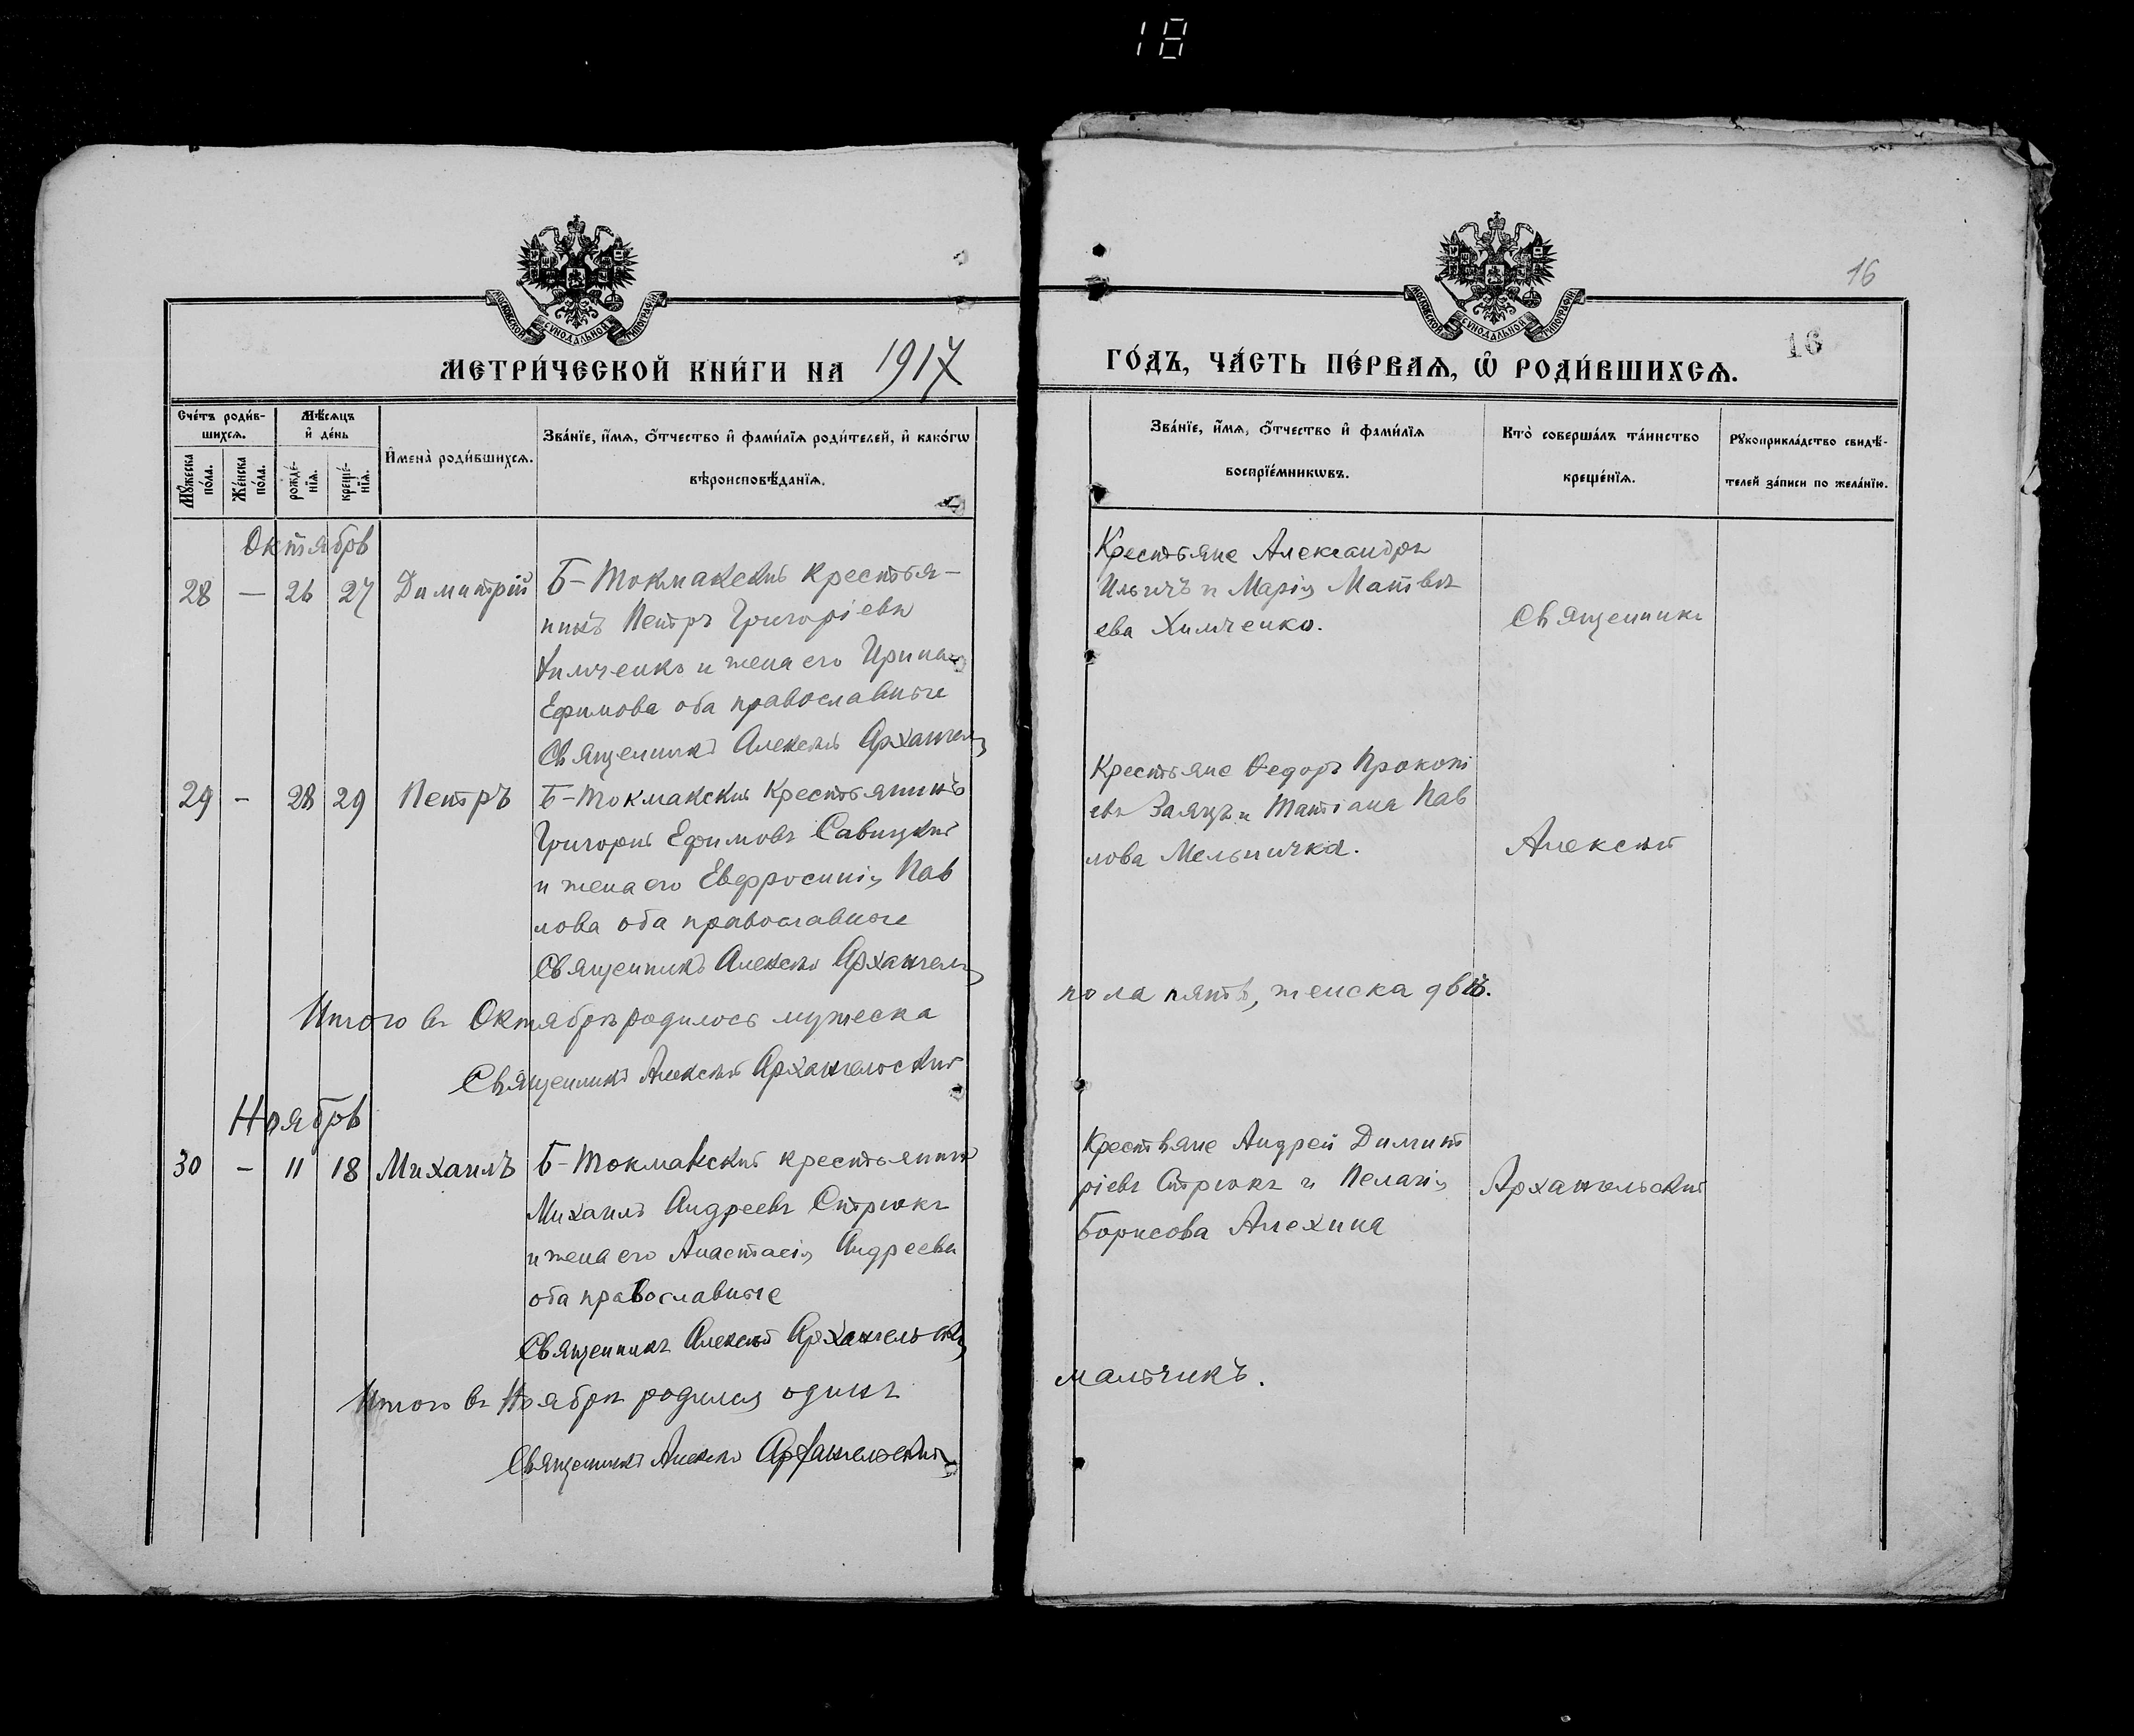 18
16
МОСКОВСКОЙ СУНОДАЛЬНОЙ ТИПОГРАФІИ
МОСКОВСКОЙ СУНОДАЛЬНОЙ ТИПОГРАФІИ
МЕТРИ́ЧЕСКОЙ КНИ́ГИ НА 1917
ГО́ДЪ, ЧА́СТЬ ПЕ́РВАѦ, Ѡ҆ РОДИ́ВШИХСѦ.
16
Сче́тъ роди́в-
шихсѧ.
Мѣ́сѧцъ
и҆ де́нь
Мꙋ́жеска по́ла.
Же́нска по́ла.
рожде́-
нїѧ.
креще́-
нїѧ.
И҆мена̀ роди́вшихсѧ.
Зва́нїе, и҆́мѧ, ѻ҆́тчество и҆ фами́лїѧ роди́телей, и҆ како́гѡ
вѣроисповѣ́данїѧ.
Зва́нїе, и҆́мѧ, ѻ҆́тчество и҆ фами́лїѧ
воспрїе́мникѡвъ.
Кто̀ соверша́лъ та́инство
креще́нїѧ.
Рꙋкоприкла́дство свидѣ́-
телей за́писи по жела́нїю.
Октябрь
28 — 26 27 Димитрій
Б-Токмакскій крестья-
нинъ Петръ Григоріевъ
Химченко и жена его Ирина
Ефимова оба православные
Священникъ Алексѣй Архангел
Крестьяне Александръ
Ильичъ и Марія Матвѣ
ева Химченко.
Священникъ
29 - 28 29 Петръ
Б-Токмакскій Крестьянинъ
Григорій Ефимовъ Савицкій
и жена его Евфросинія Пав
лова оба православные
Священникъ Алексѣй Архангел
Крестьяне Ѳедоръ Прокопі
евъ Заяцъ и Татіана Пав
лова Мельничка.
Алексѣй
Итого въ Октябрѣ родилось мужеска
пола пять, женска двѣ.
Священникъ Алексѣй Архангельскій
Ноябрь
30 - 11 18 Михаилъ
Б-Токмакскій крестьянинъ
Михаилъ Андреевъ Стрюкъ
и жена его Анастасія Андреева
оба православные
Священникъ Алексѣй Архангельскій
Крестьяне Андрей Димит
ріевъ Стрюкъ и Пелагія
Борисова Алехина
Архангельскій
Итого въ Ноябрѣ родился одинъ
мальчикъ.
Священникъ Алексѣй Архангельскій